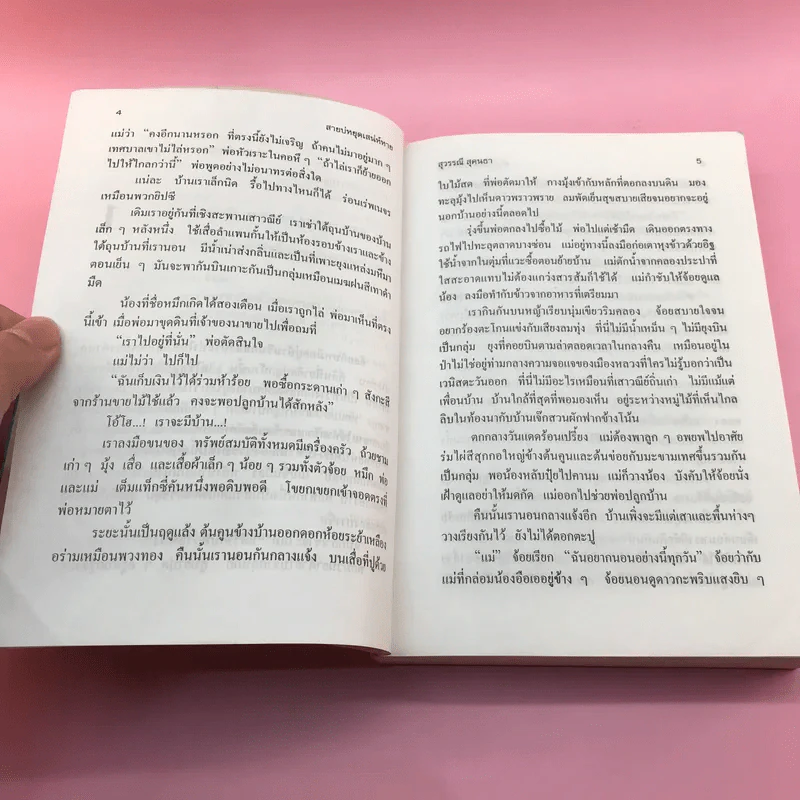 4
สายบ่หยุดเสน่ห์หาย
แม่ว่า “คงอีกนานหรอก ที่ตรงนี้ยังไม่เจริญ ถ้าคนไม่มาอยู่มาก ๆ
เทศบาลเขาไม่ไล่หรอก” พ่อหัวเราะในคอหึ ๆ “ถ้าไล่เราก็ย้ายออก
ไปให้ไกลกว่านี้” พ่อพูดอย่างไม่อนาทรต่อสิ่งใด
แน่ละ บ้านเราเล็กนิด รื้อไปทางไหนก็ได้ ร่อนเร่พเนจร
เหมือนพวกยิปซี
เดิมเราอยู่กันที่เชิงสะพานเสาวณีย์ เราเช่าใต้ถุนบ้านของบ้าน
เล็ก ๆ หลังหนึ่ง ใช้เสื่อลำแพนกั้นให้เป็นห้องรอบข้างเราและข้าง
ใต้ถุนบ้านที่เรานอน มีน้ำเน่าส่งกลิ่นและเป็นที่เพาะยุงแหล่งมหึมา
ตอนเย็น ๆ มันจะพากันบินเกาะกันเป็นกลุ่มเหมือนเมฆฝนสีเทาดำ
มืด
น้องที่ชื่อหมึกเกิดได้สองเดือน เมื่อเราถูกไล่ พ่อมาเห็นที่ตรง
นี้เข้า เมื่อพ่อมาขุดดินที่เจ้าของนาขายไปเพื่อถมที่
“เราไปอยู่ที่นั่น” พ่อตัดสินใจ
แม่ไม่ว่า ไปก็ไป
“ฉันเก็บเงินไว้ได้ร่วมห้าร้อย พอซื้อกระดานเก่า ๆ สังกะสี
จากร้านขายไม้ใช้แล้ว คงจะพอปลูกบ้านได้สักหลัง”
โอ้โฮ...! เราจะมีบ้าน...!
เราลงมือขนของ ทรัพย์สมบัติทั้งหมดมีเครื่องครัว ถ้วยชาม
เก่า ๆ มุ้ง เสื่อ และเสื้อผ้าเล็ก ๆ น้อย ๆ รวมทั้งตัวจ้อย หมึก พ่อ
และแม่ เต็มแท็กซี่คันหนึ่งพอดิบพอดี โขยกเขยกเข้าจอดตรงที่
พ่อหมายตาไว้
ระยะนั้นเป็นฤดูแล้ง ต้นคูนข้างบ้านออกดอกห้อยระย้าเหลือง
อร่ามเหมือนพวงทอง คืนนั้นเรานอนกันกลางแจ้ง บนเสื่อที่ปูด้วย
สุวรรณี สุคนธา
5
ใบไม้สด ที่พ่อตัดมาให้ กางมุ้งเข้ากับหลักที่ตอกลงบนดิน มอง
ทะลุมุ้งไปเห็นดาวพราวพราย ลมพัดเย็นสุขสบายเสียจนอยากจะอยู่
นอกบ้านอย่างนี้ตลอดไป
รุ่งขึ้นพ่อตกลงไปซื้อไม้ พ่อไปแต่เช้ามืด เดินออกตรงทาง
รถไฟไปทะลุตลาดบางซ่อน แม่อยู่ทางนี้ลงมือก่อเตาหุงข้าวด้วยอิฐ
ใช้น้ำจากในตุ่มที่แวะซื้อตอนย้ายบ้าน แม่ตักน้ำจากคลองประปาที่
ใสสะอาดแทบไม่ต้องแกว่งสารส้มก็ใช้ได้ แม่กำชับให้จ้อยดูแล
น้อง ลงมือทำกับข้าวจากอาหารที่เตรียมมา
เรากินกันบนหญ้าเรียบนุ่มเขียวริมคลอง จ้อยสบายใจจน
อยากร้องตะโกนแข่งกับเสียงลมทุ่ง ที่นี่ไม่มีน้ำเหม็น ๆ ไม่มียุงบิน
เป็นกลุ่ม ยุงที่คอยบินตามล่าตลอดเวลาในกลางคืน เหมือนอยู่ใน
ป่าไม่ใช่อยู่ท่ามกลางความจอแจของเมืองหลวงที่ใครไม่รู้บอกว่าเป็น
เวนิสตะวันออก ที่นี่ไม่มีอะไรเหมือนที่เสาวณีย์ถิ่นเก่า ไม่มีแม้แต่
เพื่อนบ้าน บ้านใกล้ที่สุดที่พอมองเห็น อยู่ระหว่างหมู่ไม้ที่เห็นไกล
ลิบในท้องนากับบ้านเจ๊กสวนผักฟากข้างโน้น
ตกกลางวันแดดร้อนเปรี้ยง แม่ต้องพาลูก ๆ อพยพไปอาศัย
ร่มไผ่สีสุกกอใหญ่ข้างต้นคูนและต้นข่อยกับมะขามเทศขึ้นรวมกัน
เป็นกลุ่ม พอน้องหลับปุ๋ยไปคานม แม่ก็วางน้อง บังคับให้จ้อยนั่ง
เฝ้าดูแลอย่าให้มดกัด แม่ออกไปช่วยพ่อปลูกบ้าน
คืนนั้นเรานอนกลางแจ้งอีก บ้านเพิ่งจะมีแต่เสาและพื้นห่างๆ
วางเรียงกันไว้ ยังไม่ได้ตอกตะปู
“แม่” จ้อยเรียก “ฉันอยากนอนอย่างนี้ทุกวัน” จ้อยว่ากับ
แม่ที่กล่อมน้องอือเออยู่ข้าง ๆ จ้อยนอนดูดาวกะพริบแสงยิบ ๆ